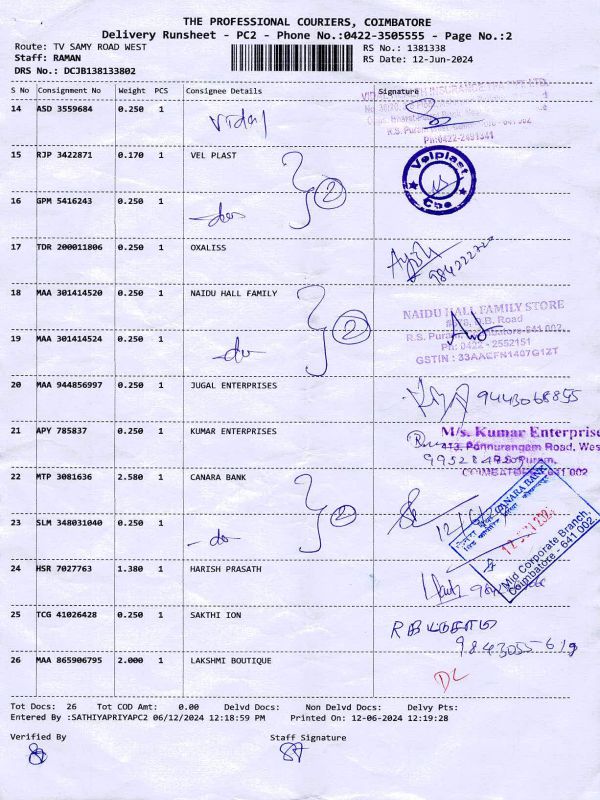 THE PROFESSIONAL COURIERS, COIMBATORE
Delivery Runsheet - PC2 - Phone No.:0422-3505555 - Page No.:2
Route: TV SAMY ROAD WEST RS No.: 1381338
Staff: RAMAN RS Date: 12-Jun-2024
DRS No.: DCJB138133802
S No Consignment No Weight PCS Consignee Details Signature
14 ASD 3559684 0.250 1 Vidal
Ph:0422-2491341
15 RJP 3422871 0.170 1 VEL PLAST 2 Velplast Cbe
16 GPM 5416243 0.250 1 -do-
17 TDR 200011806 0.250 1 OXALISS
18 MAA 301414520 0.250 1 NAIDU HALL FAMILY 2 NAIDU HALL FAMILY STORE
D.B. Road
19 MAA 301414524 0.250 1 -do- R.S. Puram, Coimbatore-641 002
Ph: 0422 - 2552151
GSTIN : 33AAEFN1407G1ZT
20 MAA 944856997 0.250 1 JUGAL ENTERPRISES 9443068855
21 APY 785837 0.250 1 KUMAR ENTERPRISES M/s. Kumar Enterprise
413, Ponnurangam Road, Wes
R.S. Puram,
COIMBATORE-641 002
22 MTP 3081636 2.580 1 CANARA BANK 2 CANARA BANK
23 SLM 348031040 0.250 1 -do- Mid Corporate Branch,
Coimbatore - 641 002
24 HSR 7027763 1.380 1 HARISH PRASATH
25 TCG 41026428 0.250 1 SAKTHI ION
9843055619
26 MAA 865906795 2.000 1 LAKSHMI BOUTIQUE DL
Tot Docs: 26 Tot COD Amt: 0.00 Delvd Docs: Non Delvd Docs: Delvy Pts:
Entered By :SATHIYAPRIYAPC2 06/12/2024 12:18:59 PM Printed On: 12-06-2024 12:19:28
Verified By Staff Signature